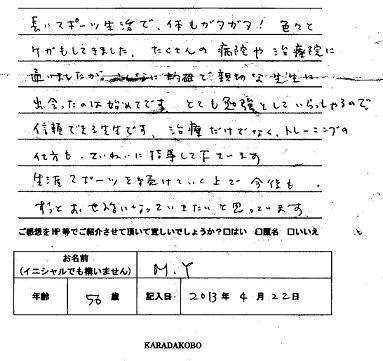 長いスポーツ生活で、体もガタガタ! 色々と
ケガもしてきました。たくさんの病院や治療院に
通いましたが こんなに 的確で親切な先生に
出会ったのは始めてです。とても勉強としていらっしゃるので
信頼できる先生です。治療だけでなく、トレーニングの
仕方も、ていねいに指導して下さいます
生涯スポーツを続けていく上で 今後も、
ずっとお世話になっていきたいと思っています
ご感想をHP等でご紹介させて頂いて宜しいでしょうか?□はい □匿名 □いいえ
お名前
(イニシャルでも構いません) M.Y
年齢 56 歳 記入日 2013年 4月 22日
KARADAKOBO